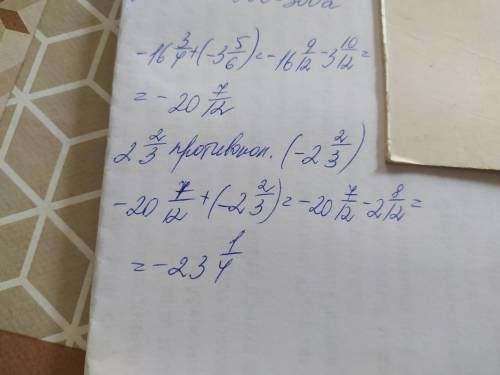 -16 3/4 + (-3 5/6) = -16 9/12 - 3 10/12 =
= -20 7/12
2 2/3 противопол. (-2 2/3)
-20 7/12 + (-2 2/3) = -20 7/12 - 2 8/12 =
= -23 1/4